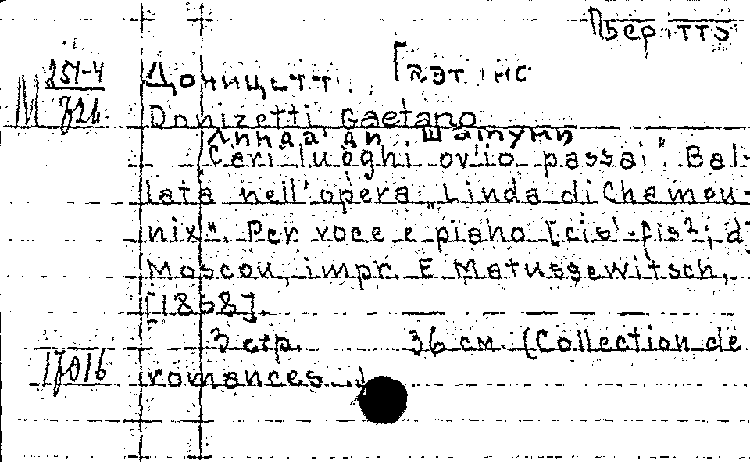 М 251-4
726
Доницетти, Гаэтано
Donizetti Gaetano
"Cari luoghi ov'io passai". Bal-
lata nell'opera „Linda di Chamou-
nix". Per voce e piano [cis¹-fis²; d]
Moscou, impr. E Matussewitsch,
[1868].
3 стр. 36 см (Collection de
17016
romances...)